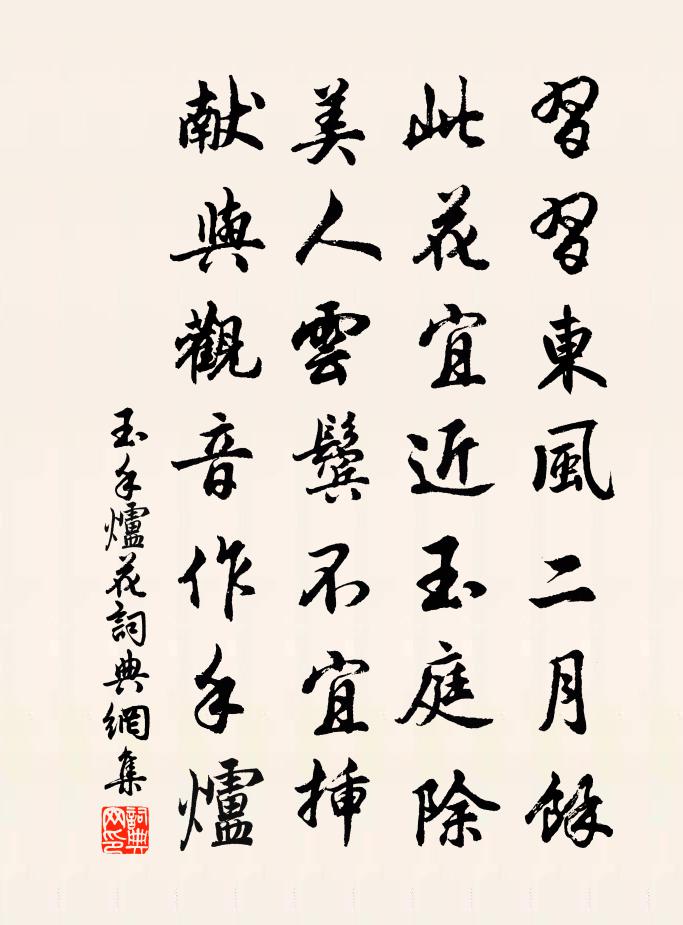 習習東風二月餘
此花宜近玉庭除
美人雲鬢不宜揷
献與觀音作手爐
玉手爐花詞典網集
詞典網印